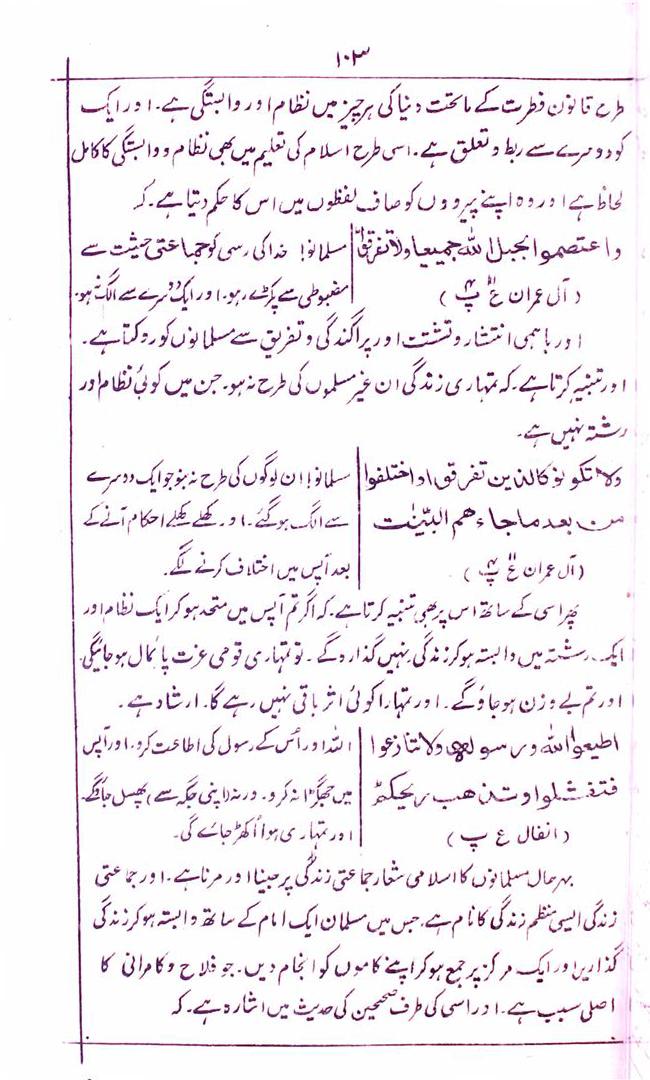 ۱۰۳
طرح قانون فطرت کے ماتحت دنیا کی ہر چیز میں نظام اور وابستگی ہے۔ اور ایک
کو دوسرے سے ربط و تعلق ہے۔ اسی طرح اسلام کی تعلیم میں بھی نظام و وابستگی کا کامل
لحاظ ہے اور وہ اپنے پیرووں کو صاف لفظوں میں اس کا حکم دیتا ہے۔ کہ
واعتصموا بحبل اللہ جمیعا ولا تفرقوا
(آل عمران ع پ)
مسلمانو! خدا کی رسی کو جماعتی حیثیت سے
مضبوطی سے پکڑے رہو۔ اور ایک دوسرے سے الگ نہ ہو۔
اور باہمی انتشار و تشتت اور پراگندگی و تفریق سے مسلمانوں کو روکتا ہے۔
اور تنبیہ کرتا ہے۔ کہ تمہاری زندگی ان غیر مسلموں کی طرح نہ ہو۔ جن میں کوئی نظام اور
رشتہ نہیں ہے۔
ولا تکونوا کالذین تفرقوا واختلفوا
من بعد ما جاءھم البینٰت
(آل عمران ع پ)
مسلمانو! ان لوگوں کی طرح نہ بنو جو ایک دوسرے
سے الگ ہو گئے۔ اور کھلے کھلے احکام آنے کے
بعد آپس میں اختلاف کرنے لگے۔
پھر اسی کے ساتھ اس پر بھی تنبیہ کرتا ہے۔ کہ اگر تم آپس میں متحد ہو کر ایک نظام اور
ایک رشتہ میں وابستہ ہو کر زندگی نہیں گذارو گے۔ تو تمہاری قومی عزت پائمال ہو جائیگی
اور تم بے وزن ہو جاؤ گے۔ اور تمہارا کوئی اثر باقی نہیں رہے گا۔ ارشاد ہے۔
اطیعوا اللہ ورسولہ ولا تنازعوا
فتفشلوا وتذھب ریحکم
(انفال ع پ)
اللہ اور اُس کے رسول کی اطاعت کرو۔ اور آپس
میں جھگڑا نہ کرو۔ ورنہ (اپنی جگہ سے) پھسل جاؤ گے۔
اور تمہاری ہوا اُکھڑ جائے گی۔
بہر حال مسلمانوں کا اسلامی شعار جماعتی زندگی پر جینا اور مرنا ہے۔ اور جماعتی
زندگی ایسی منظم زندگی کا نام ہے۔ جس میں مسلمان ایک امام کے ساتھ وابستہ ہو کر زندگی
گذاریں اور ایک مرکز پر جمع ہو کر اپنے کاموں کو انجام دیں۔ جو فلاح و کامرانی کا
اصلی سبب ہے۔ اور اسی کی طرف صحیحین کی حدیث میں اشارہ ہے۔ کہ